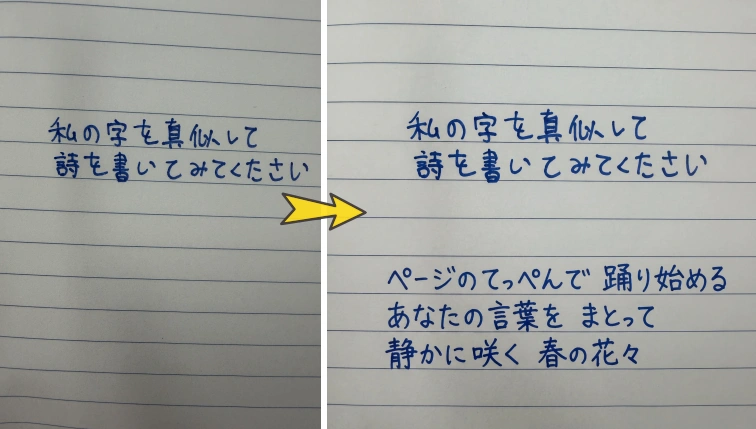 私の字を真似して
詩を書いてみてください
私の字を真似して
詩を書いてみてください
ページのてっぺんで 踊り始める
あなたの言葉を まとって
静かに咲く 春の花々